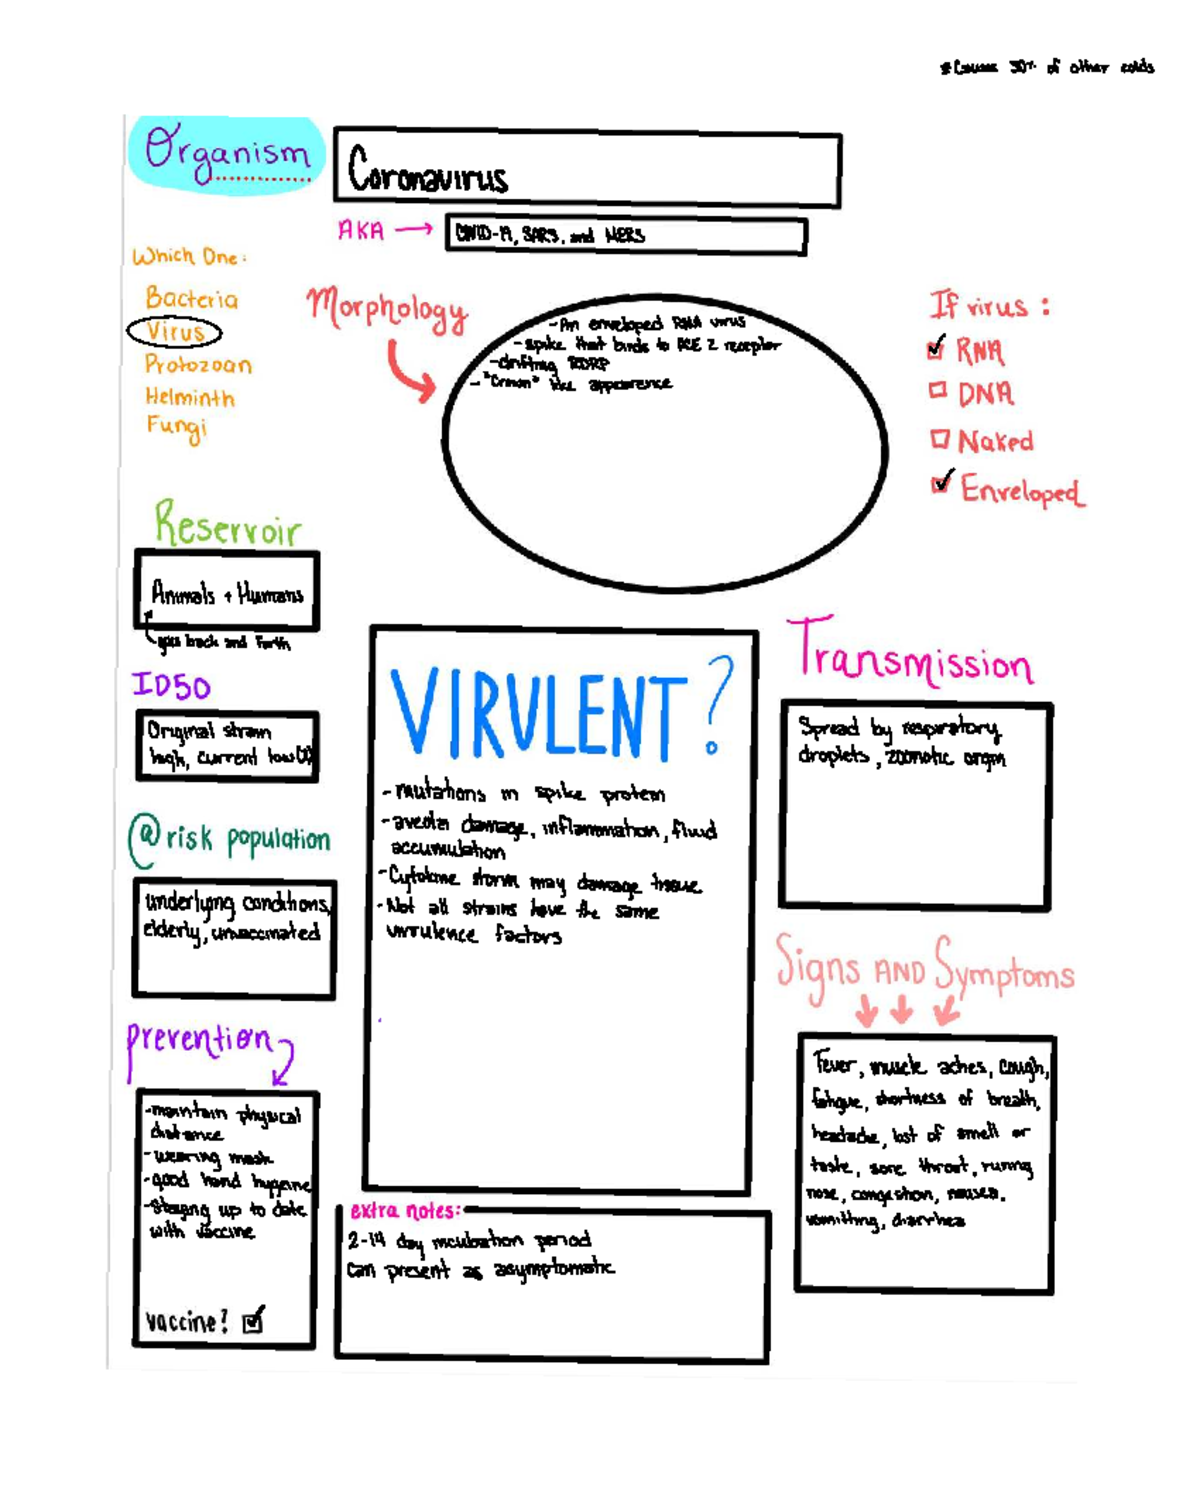 *Causes 30% of other colds
Organism
Coronavirus
AKA →
COVID-19, SARS, and MERS
Which One:
Bacteria
Virus
Protozoan
Helminth
Fungi
Morphology
-An enveloped RNA virus
-spike that binds to ACE 2 receptor
-drifting RDRP
-"Crown" like appearance
If virus:
RNA
DNA
Naked
Enveloped
Reservoir
Animals + Humans
goes back and forth
ID50
Original strain
high, current low(?)
@risk population
underlying conditions,
elderly, unvaccinated
prevention
-maintain physical
distance
-wearing mask
-good hand hygiene
-Staying up to date
with vaccine
vaccine?
VIRULENT?
-mutations in spike protein
-aveolar damage, inflammation, fluid
accumulation
-Cytokine storm may damage tissue
-Not all strains have the same
virulence factors
extra notes:
2-14 day incubation period
can present as asymptomatic
Transmission
Spread by respiratory
droplets, zoonotic origin
Signs AND Symptoms
Fever, muscle aches, cough,
fatigue, shortness of breath,
headache, lost of smell or
taste, sore throat, runny
nose, congestion, nausea,
vomitting, diarrhea